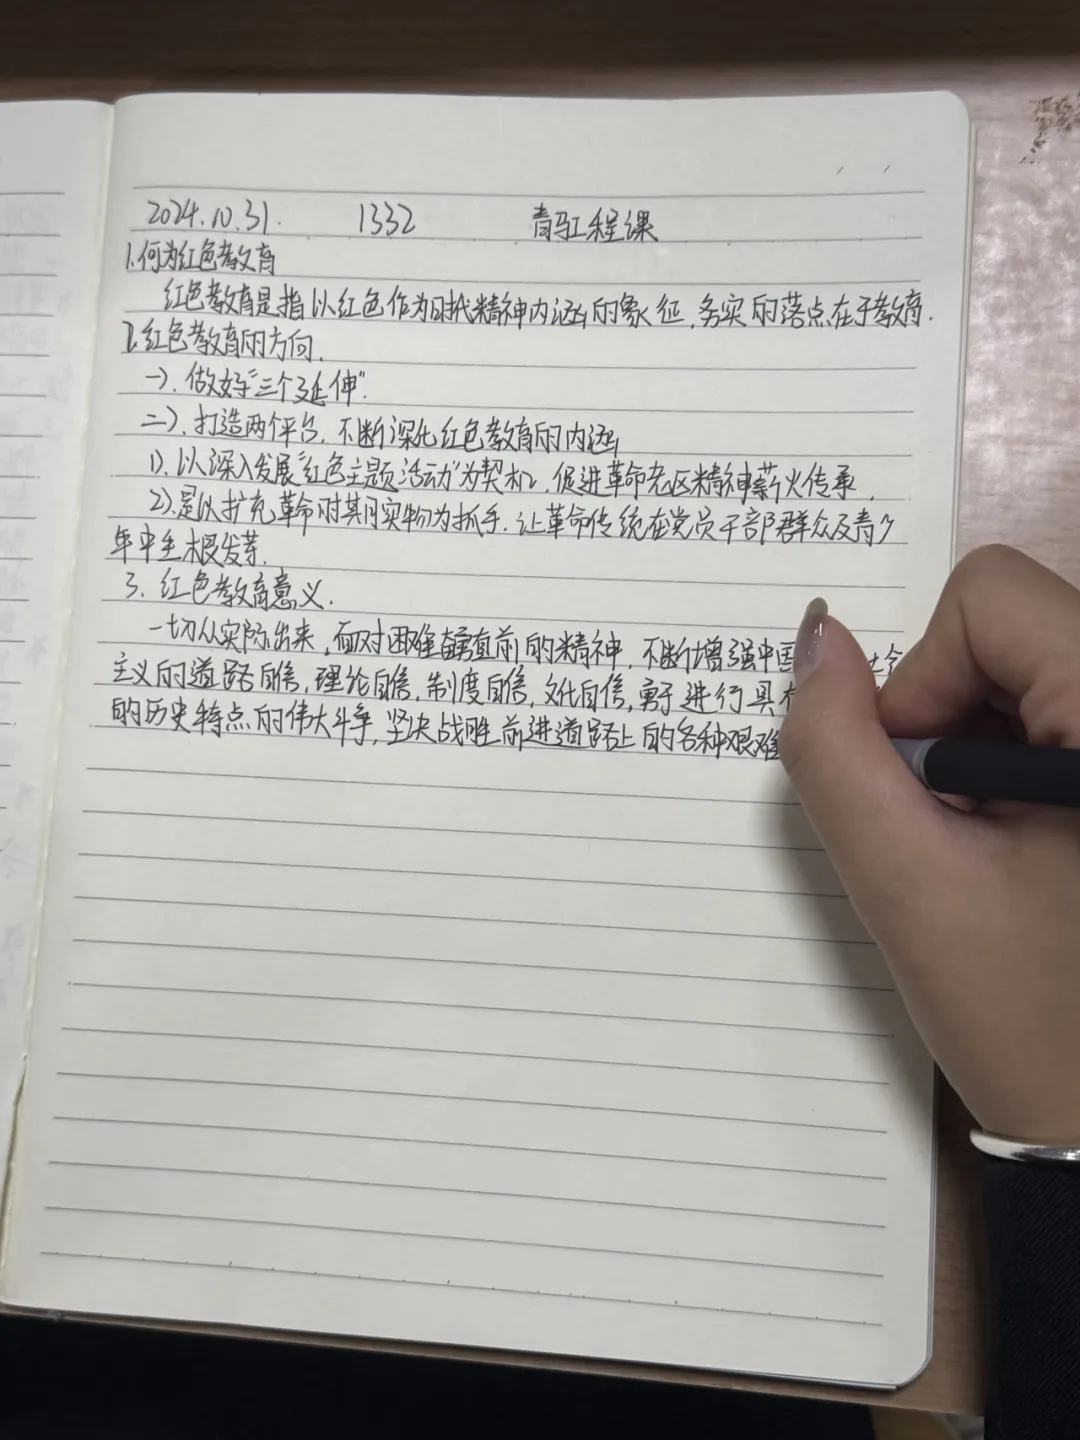 2024.10.31. 1332 青马工程课
1.何为红色教育
红色教育是指以红色作为时代精神内涵的象征,务实的落点在于教育.
2.红色教育的方向.
一).做好"三个延伸".
二).打造两个平台,不断深化红色教育的内涵
1).以深入发展"红色主题活动"为契机,促进革命老区精神薪火传承.
2).是以扩充革命时期实物为抓手.让革命传统在党员干部群众及青少
年中生根发芽.
3.红色教育意义.
一切从实际出来,面对困难奋勇直前的精神,不断增强中国
主义的道路自信,理论自信,制度自信,文化自信,勇于进行具
的历史特点的伟大斗争,坚决战胜前进道路上的各种艰难